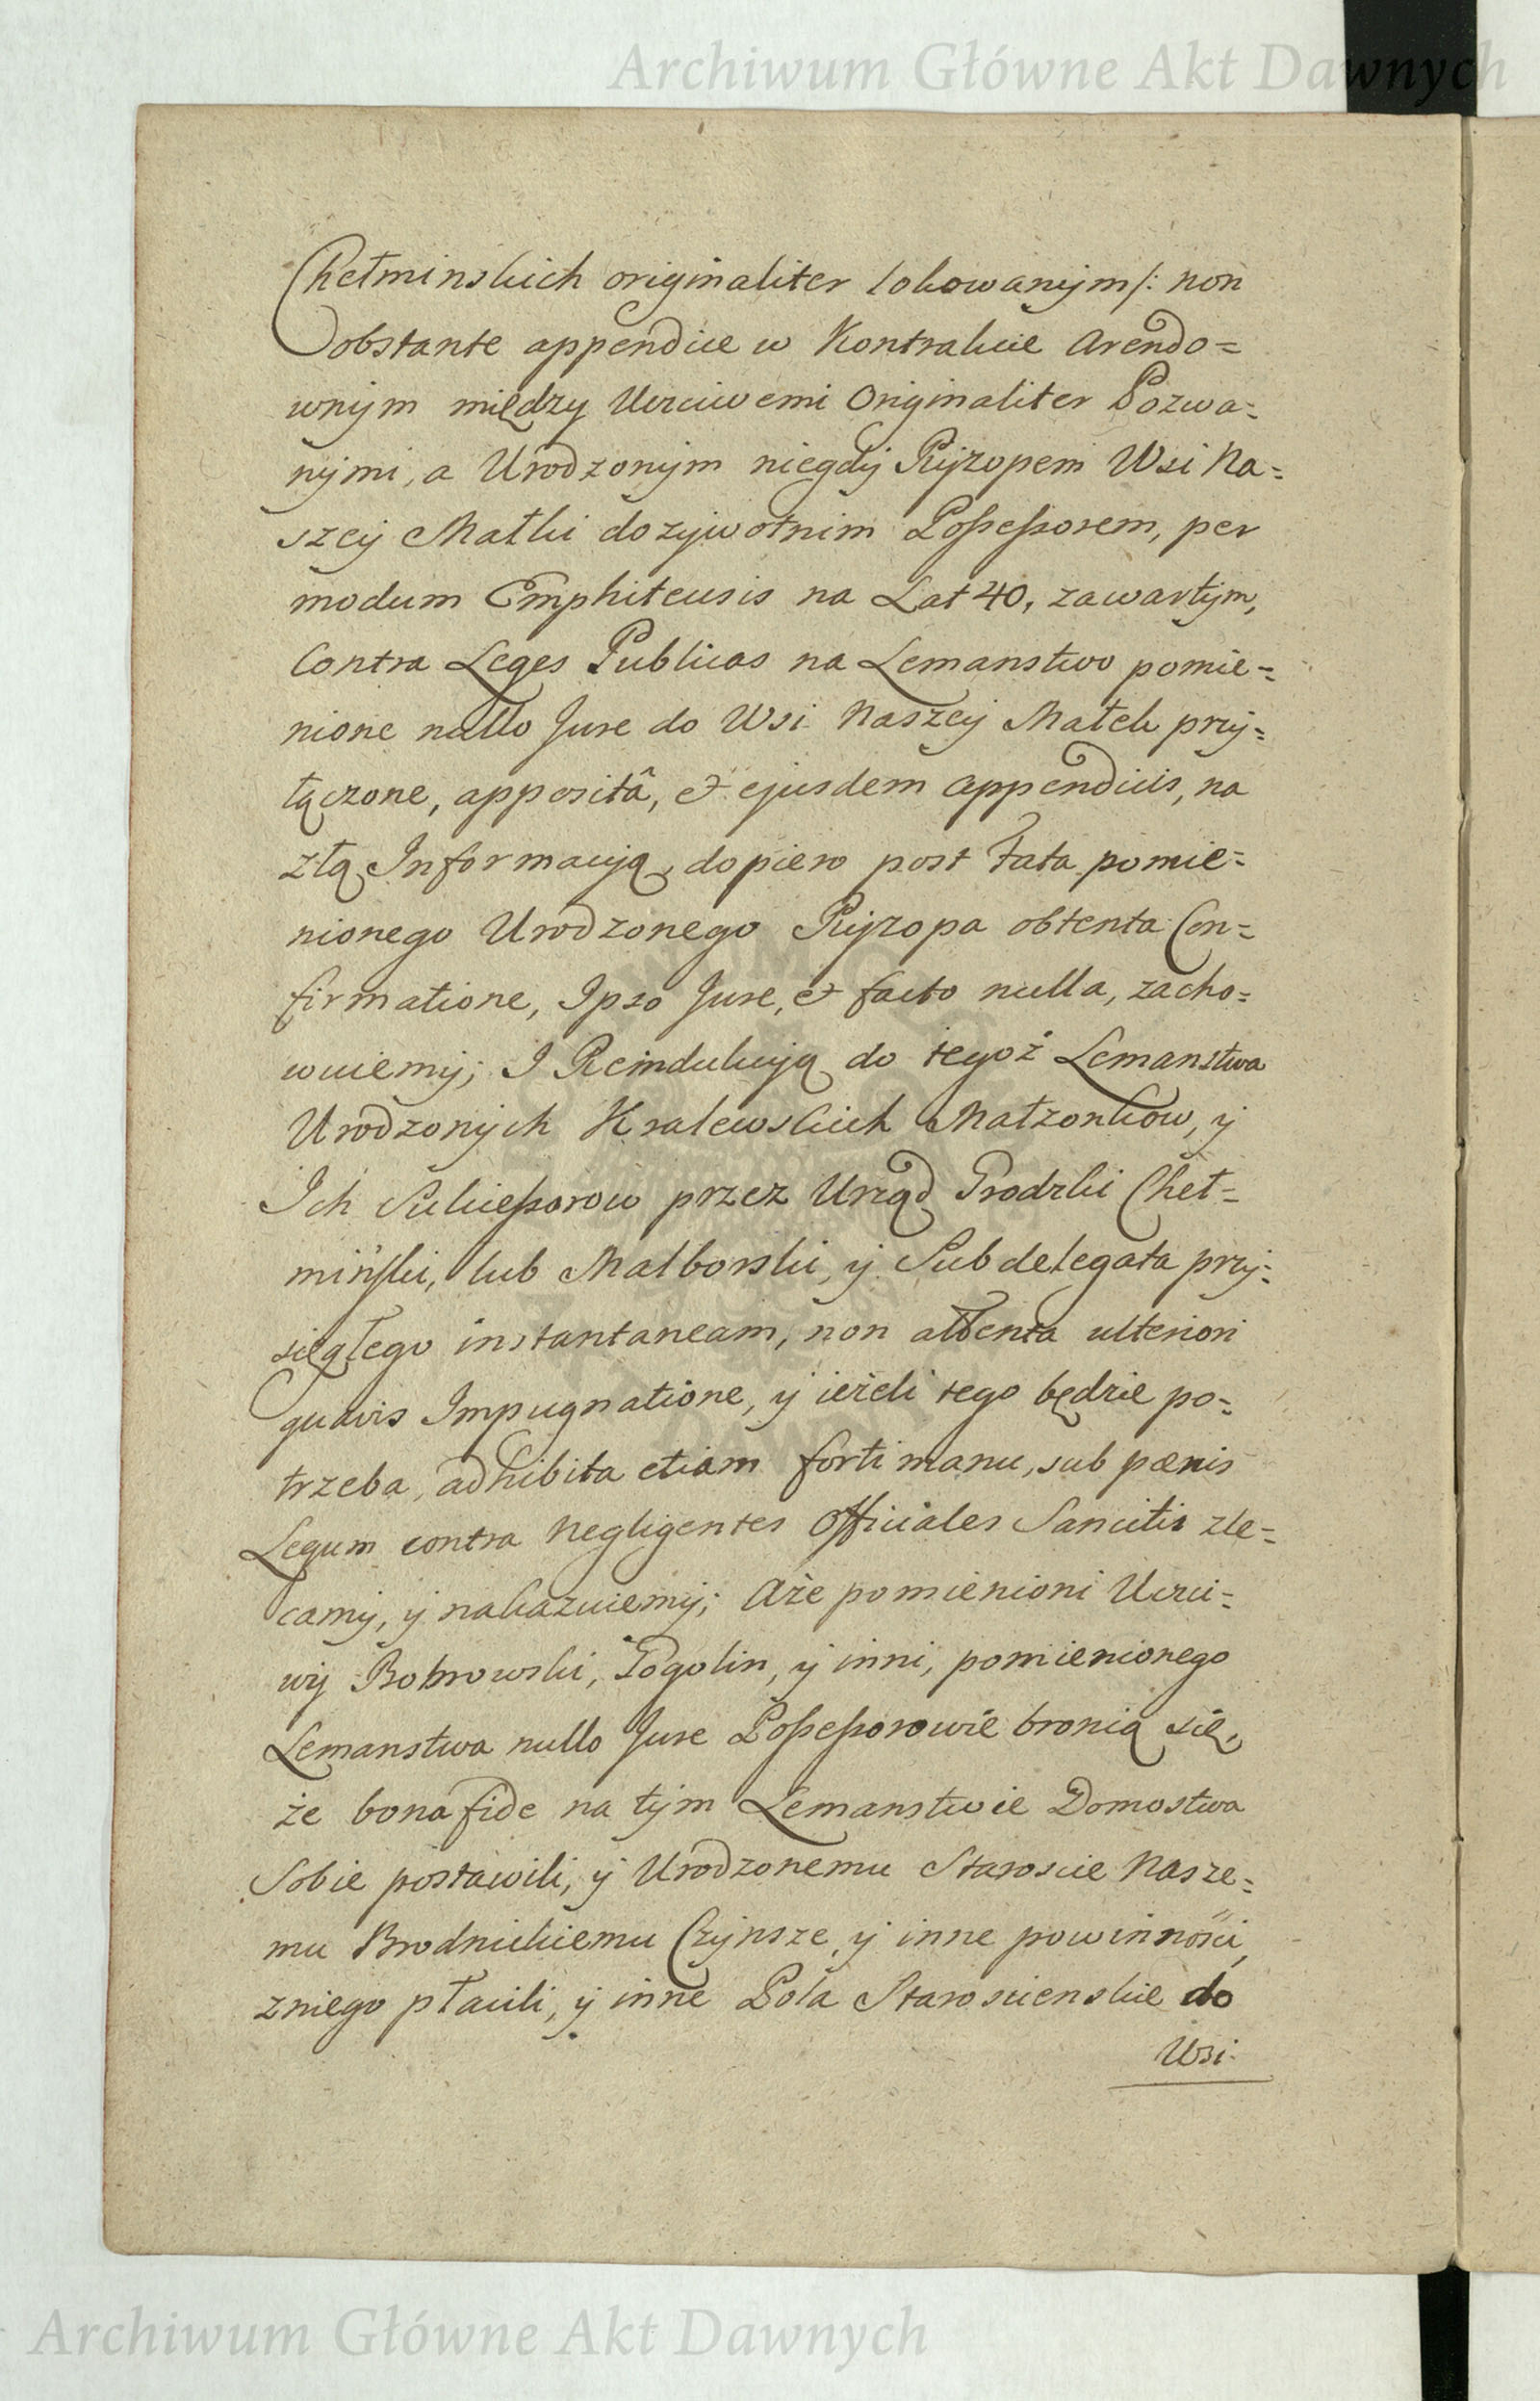 Archiwum Główne Akt Dawnych
Chełminskich originaliter lokowanym/: non
obstante appendice w Kontrakcie Arendo=
wnym między Uczciwemi Originaliter Pozwa=
nymi, a Urodzonym niegdy Pyrzopem Wsi Na=
szey Małki dozywotnim Possessorem, per
modum Emphiteusis na Lat 40, zawartym,
Contra Leges Publicas na Lemanstwo pomie=
nione nullo Jure do Wsi Naszey Małek przy=
łączone, appositâ, et ejusdem appendicis, na
złą Informacyą, dopiero post fata pomie=
nionego Urodzonego Pyrzopa obtenta Con=
firmatione, Ipso Jure, et facto nulla, zacho=
wuiemy; I Reindukcyą do tegoż Lemanstwa
Urodzonych Kralewskich Małzonkow, y
Ich Sukcessorow przez Urząd Grodzki Cheł=
miński, lub Malborski, y Subdelegata przy=
sięgłego instantaneam, non attenta ulteriori
quavis Impugnatione, y ieżeli tego będzie po=
trzeba, adhibita etiam forti manu, sub pænis
Legum contra Negligentes Officiales Sancitis zle=
camy, y nakazuiemy; Aże pomienioni Uczci=
wy Bobrowski, Pogolin, y inni, pomienionego
Lemanstwa nullo Jure Possessorowie bronią się,
że bona fide na tym Lemanstwie Domostwa
Sobie postawili, y Urodzonemu Staroscie Nasze=
mu Brodnickiemu Czynsze, y inne powinności,
zniego płacili, y inne Pola Staroscienskie do
Wsi
Archiwum Główne Akt Dawnych